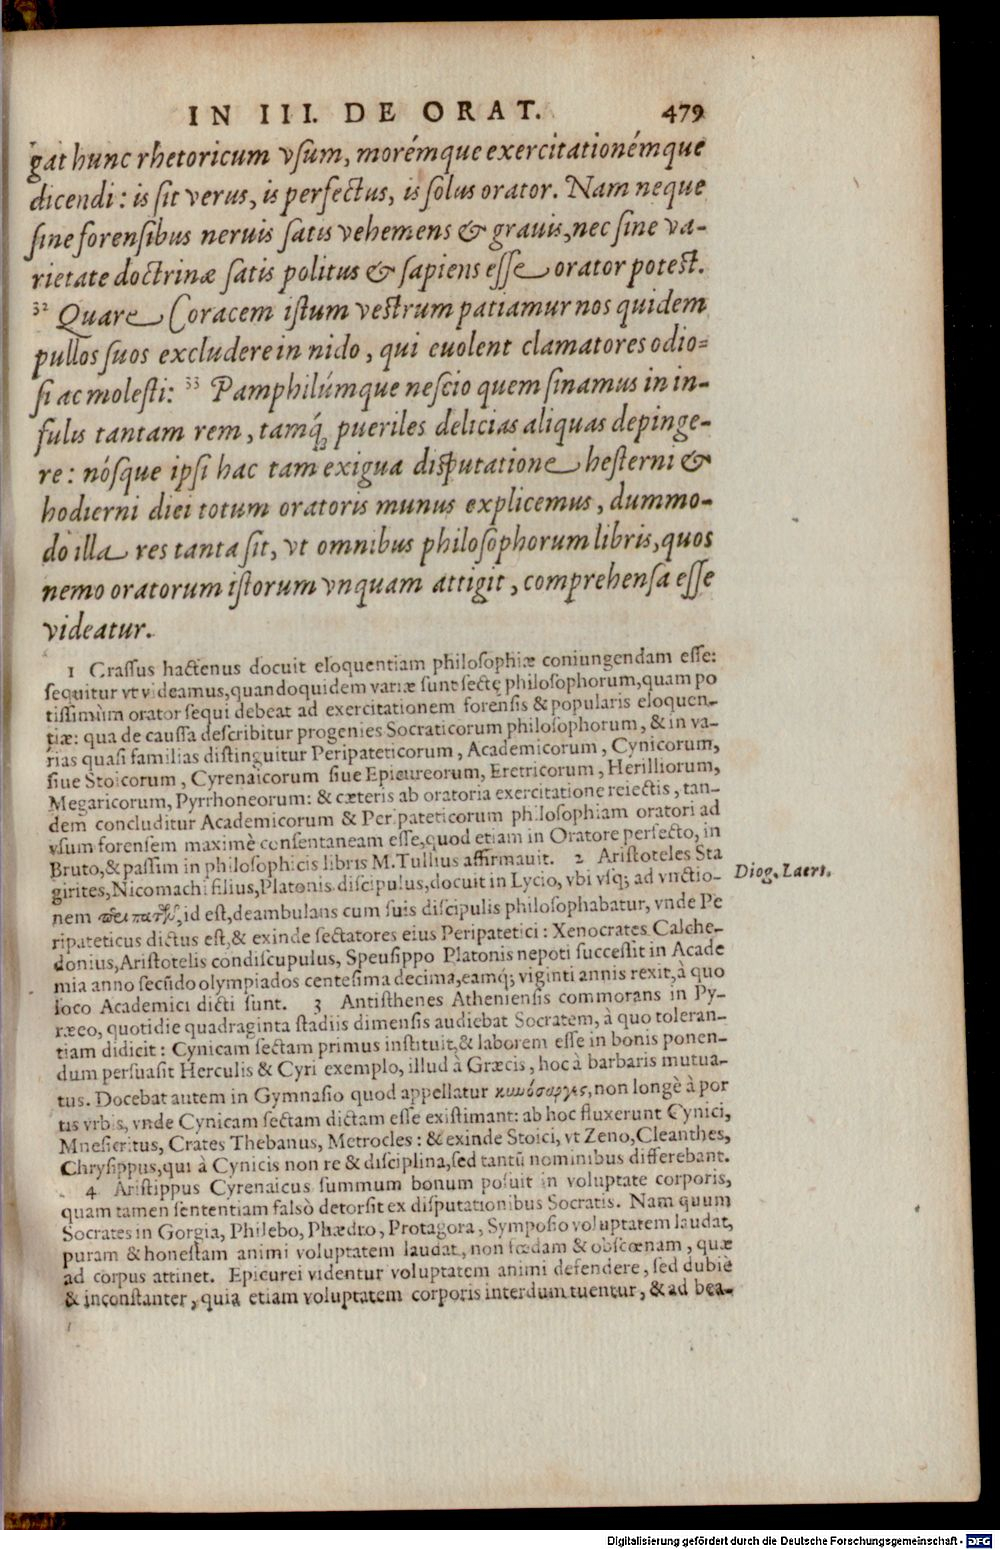 IN III. DE ORAT. 479
gat hunc rhetoricum vsum, morémque exercitationémque
dicendi: is sit verus, is perfectus, is solus orator. Nam neque
sine forensibus neruis satis vehemens & grauis, nec sine va-
rietate doctrinæ satis politus & sapiens esse orator potest.
32 Quare Coracem istum vestrum patiamur nos quidem
pullos suos excludere in nido, qui euolent clamatores odio-
si ac molesti: 33 Pamphilúmque nescio quem sinamus in in-
fulis tantam rem, tamq́; pueriles delicias aliquas depinge-
re: nósque ipsi hac tam exigua disputatione hesterni &
hodierni diei totum oratoris munus explicemus, dummo-
do illa res tanta sit, vt omnibus philosophorum libris, quos
nemo oratorum istorum vnquam attigit, comprehensa esse
videatur.
1 Crassus hactenus docuit eloquentiam philosophiæ coniungendam esse:
sequitur vt videamus, quandoquidem variæ sunt sectę philosophorum, quam po
tissimùm orator sequi debeat ad exercitationem forensis & popularis eloquen-
tiæ: qua de caussa describitur progenies Socraticorum philosophorum, & in va-
rias quasi familias distinguitur Peripateticorum, Academicorum, Cynicorum,
siue Stoicorum, Cyrenaicorum siue Epicureorum, Eretricorum, Herilliorum,
Megaricorum, Pyrrhoneorum: & cæteris ab oratoria exercitatione reiectis, tan-
dem concluditur Academicorum & Peripateticorum philosophiam oratori ad
vsum forensem maximè consentaneam esse, quod etiam in Oratore perfecto, in
Bruto, & passim in philosophicis libris M. Tullius affirmauit. 2 Aristoteles Sta
girites, Nicomachi filius, Platonis discipulus, docuit in Lycio, vbi vsq; ad vnctio-
Diog. Laert.
nem id est, deambulans cum suis discipulis philosophabatur, vnde Pe
ripateticus dictus est, & exinde sectatores eius Peripatetici: Xenocrates Calche-
donius, Aristotelis condiscupulus, Speusippo Platonis nepoti successit in Acade
mia anno secũdo olympiados centesima decima, eamq; viginti annis rexit, à quo
loco Academici dicti sunt. 3 Antisthenes Atheniensis commorans in Py-
ræeo, quotidie quadraginta stadiis dimensis audiebat Socratem, à quo toleran-
tiam didicit: Cynicam sectam primus instituit, & laborem esse in bonis ponen-
dum persuasit Herculis & Cyri exemplo, illud à Græcis, hoc à barbaris mutua-
tus. Docebat autem in Gymnasio quod appellatur κυνόσαργες, non longè à por
tis vrbis, vnde Cynicam sectam dictam esse existimant: ab hoc fluxerunt Cynici,
Mnesicritus, Crates Thebanus, Metrocles: & exinde Stoici, vt Zeno, Cleanthes,
Chrysippus, qui à Cynicis non re & disciplina, sed tantũ nominibus differebant.
4 Aristippus Cyrenaicus summum bonum posuit in voluptate corporis,
quam tamen sententiam falsò detorsit ex disputationibus Socratis. Nam quum
Socrates in Gorgia, Philebo, Phædro, Protagora, Symposio voluptatem laudat,
puram & honestam animi voluptatem laudat, non fœdam & obscœnam, quæ
ad corpus attinet. Epicurei videntur voluptatem animi defendere, sed dubiè
& inconstanter, quia etiam voluptatem corporis interdum tuentur, & ad bea-
Digitalisierung gefördert durch die Deutsche Forschungsgemeinschaft - DFG